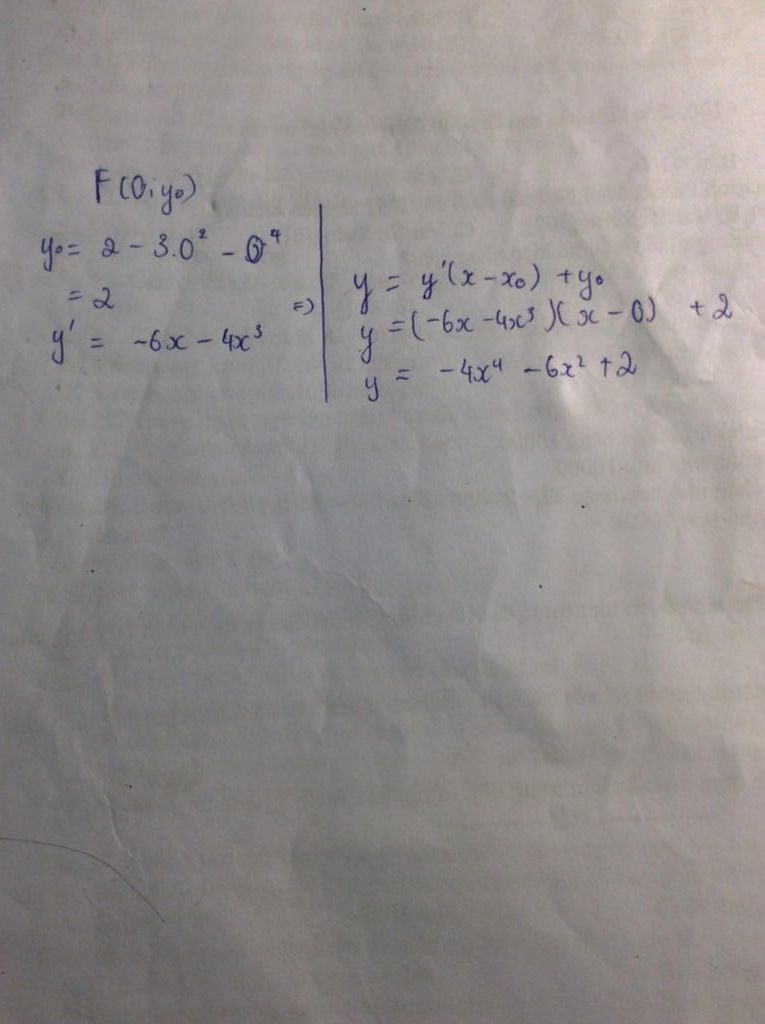 F(0;y₀)
y₀ = 2 - 3.0² - 0⁴
= 2
y' = -6x - 4x³
=>
y = y'(x - x₀) + y₀
y = (-6x - 4x³)(x - 0) + 2
y = -4x⁴ - 6x² + 2